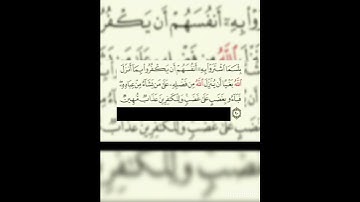 بِئْسَمَا ٱشْتَرَوْا۟ بِهِۦٓ أَنفُسَهُمْ أَن يَكْفُرُوا۟ بِمَآ أَنزَلَ
ٱللَّهُ بَغْيًا أَن يُنَزِّلَ ٱللَّهُ مِن فَضْلِهِۦ عَلَىٰ مَن يَشَآءُ مِنْ عِبَادِهِۦ
فَبَآءُو بِغَضَبٍ عَلَىٰ غَضَبٍ وَلِلْكَٰفِرِينَ عَذَابٌ مُّهِينٌ